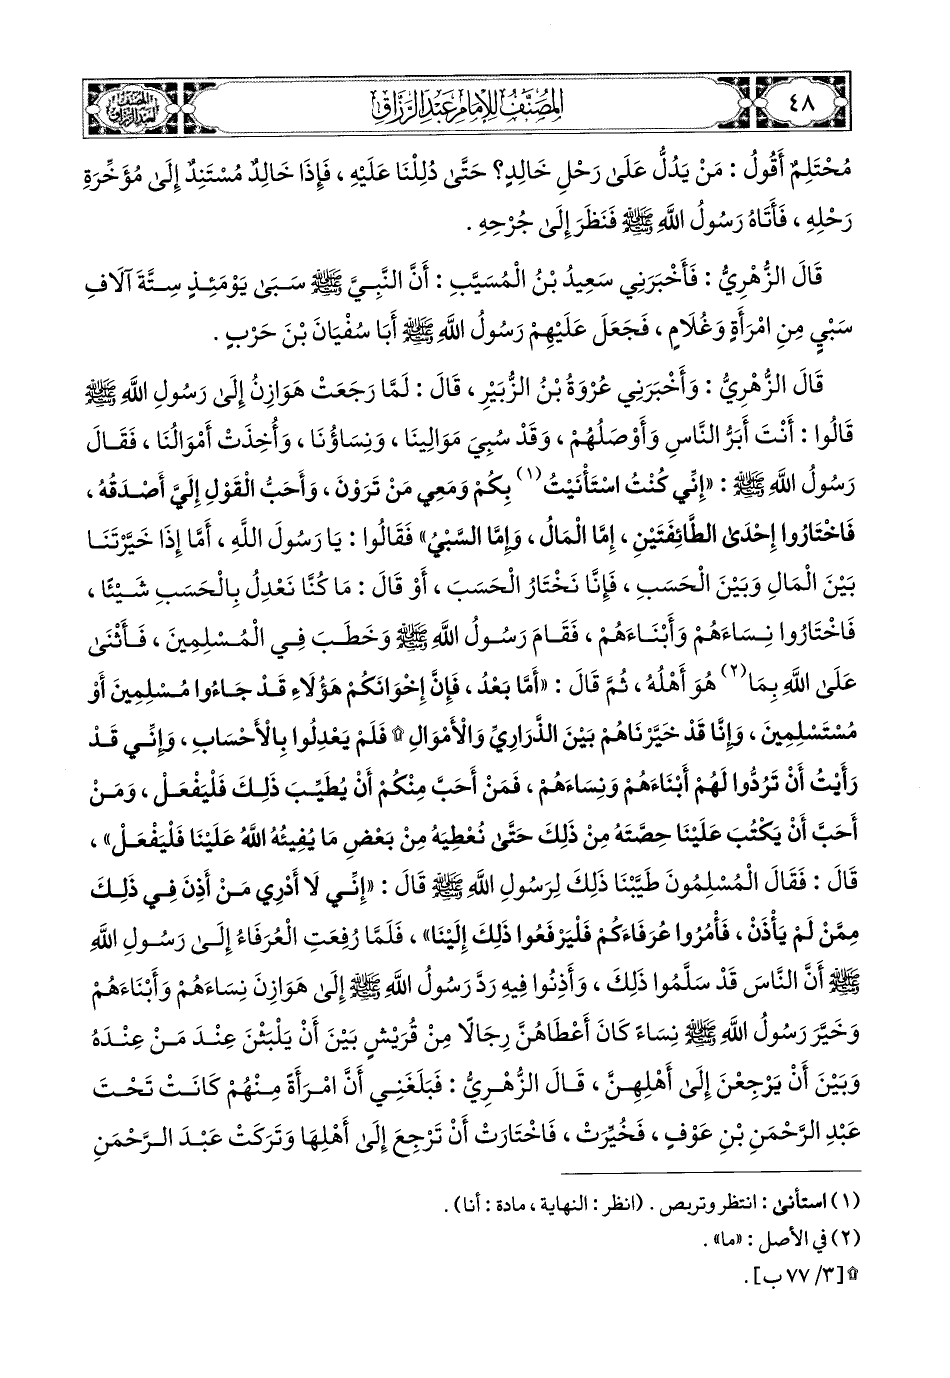 ٤٨
المصنف للإمام عبد الرزاق
المصنف لعبد الرزاق
مُحْتَلِمٌ أَقُولُ : مَنْ يَدُلُّ عَلَىٰ رَحْلِ خَالِدٍ؟ حَتَّىٰ دُلِلْنَا عَلَيْهِ ، فَإِذَا خَالِدٌ مُسْتَنِدٌ إِلَىٰ مُؤَخِّرَةِ
رَحْلِهِ ، فَأَتَاهُ رَسُولُ اللَّهِ ﷺ فَنَظَرَ إِلَىٰ جُرْحِهِ .
قَالَ الزُّهْرِيُّ : فَأَخْبَرَنِي سَعِيدُ بْنُ الْمُسَيَّبِ : أَنَّ النَّبِيَّ ﷺ سَبَىٰ يَوْمَئِذٍ سِتَّةَ آلَافِ
سَبْيٍ مِنِ امْرَأَةٍ وَغُلَامٍ ، فَجَعَلَ عَلَيْهِمْ رَسُولُ اللَّهِ ﷺ أَبَا سُفْيَانَ بْنَ حَرْبٍ .
قَالَ الزُّهْرِيُّ : وَأَخْبَرَنِي عُرْوَةُ بْنُ الزُّبَيْرِ ، قَالَ : لَمَّا رَجَعَتْ هَوَازِنُ إِلَىٰ رَسُولِ اللَّهِ ﷺ
قَالُوا : أَنْتَ أَبَرُّ النَّاسِ وَأَوْصَلُهُمْ ، وَقَدْ سُبِيَ مَوَالِينَا ، وَنِسَاؤُنَا ، وَأُخِذَتْ أَمْوَالُنَا ، فَقَالَ
رَسُولُ اللَّهِ ﷺ : «إِنِّي كُنْتُ اسْتَأْنَيْتُ(١) بِكُمْ وَمَعِي مَنْ تَرَوْنَ ، وَأَحَبُّ الْقَوْلِ إِلَيَّ أَصْدَقُهُ ،
فَاخْتَارُوا إِحْدَى الطَّائِفَتَيْنِ ، إِمَّا الْمَالَ ، وَإِمَّا السَّبْيَ» فَقَالُوا : يَا رَسُولَ اللَّهِ ، أَمَّا إِذَا خَيَّرْتَنَا
بَيْنَ الْمَالِ وَبَيْنَ الْحَسَبِ ، فَإِنَّا نَخْتَارُ الْحَسَبَ ، أَوْ قَالَ : مَا كُنَّا نَعْدِلُ بِالْحَسَبِ شَيْئًا ،
فَاخْتَارُوا نِسَاءَهُمْ وَأَبْنَاءَهُمْ ، فَقَامَ رَسُولُ اللَّهِ ﷺ وَخَطَبَ فِي الْمُسْلِمِينَ ، فَأَثْنَىٰ
عَلَى اللَّهِ بِمَا(٢) هُوَ أَهْلُهُ ، ثُمَّ قَالَ : «أَمَّا بَعْدُ ، فَإِنَّ إِخْوَانَكُمْ هَؤُلَاءِ قَدْ جَاءُوا مُسْلِمِينَ أَوْ
مُسْتَسْلِمِينَ ، وَإِنَّا قَدْ خَيَّرْنَاهُمْ بَيْنَ الذَّرَارِيِّ وَالْأَمْوَالِ ۩ فَلَمْ يَعْدِلُوا بِالْأَحْسَابِ ، وَإِنِّي قَدْ
رَأَيْتُ أَنْ تَرُدُّوا لَهُمْ أَبْنَاءَهُمْ وَنِسَاءَهُمْ ، فَمَنْ أَحَبَّ مِنْكُمْ أَنْ يُطَيِّبَ ذَلِكَ فَلْيَفْعَلْ ، وَمَنْ
أَحَبَّ أَنْ يَكْتُبَ عَلَيْنَا حِصَّتَهُ مِنْ ذَلِكَ حَتَّىٰ نُعْطِيَهُ مِنْ بَعْضِ مَا يُفِيئُهُ اللَّهُ عَلَيْنَا فَلْيَفْعَلْ» ،
قَالَ : فَقَالَ الْمُسْلِمُونَ طَيَّبْنَا ذَلِكَ لِرَسُولِ اللَّهِ ﷺ قَالَ : «إِنِّي لَا أَدْرِي مَنْ أَذِنَ فِي ذَلِكَ
مِمَّنْ لَمْ يَأْذَنْ ، فَأْمُرُوا عُرَفَاءَكُمْ فَلْيَرْفَعُوا ذَلِكَ إِلَيْنَا» ، فَلَمَّا رَفَعَتِ الْعُرَفَاءُ إِلَىٰ رَسُولِ اللَّهِ
ﷺ أَنَّ النَّاسَ قَدْ سَلَّمُوا ذَلِكَ ، وَأَذِنُوا فِيهِ رَدَّ رَسُولُ اللَّهِ ﷺ إِلَىٰ هَوَازِنَ نِسَاءَهُمْ وَأَبْنَاءَهُمْ
وَخَيَّرَ رَسُولُ اللَّهِ ﷺ نِسَاءً كَانَ أَعْطَاهُنَّ رِجَالًا مِنْ قُرَيْشٍ بَيْنَ أَنْ يَلْبَثْنَ عِنْدَ مَنْ عِنْدَهُ
وَبَيْنَ أَنْ يَرْجِعْنَ إِلَىٰ أَهْلِهِنَّ ، قَالَ الزُّهْرِيُّ : فَبَلَغَنِي أَنَّ امْرَأَةً مِنْهُمْ كَانَتْ تَحْتَ
عَبْدِ الرَّحْمَنِ بْنِ عَوْفٍ ، فَخُيِّرَتْ ، فَاخْتَارَتْ أَنْ تَرْجِعَ إِلَىٰ أَهْلِهَا وَتَرَكَتْ عَبْدَ الرَّحْمَنِ
(١) استأنى : انتظر وتربص . (انظر : النهاية ، مادة : أنا) .
(٢) في الأصل : «ما» .
۩ [٣/ ٧٧ ب] .